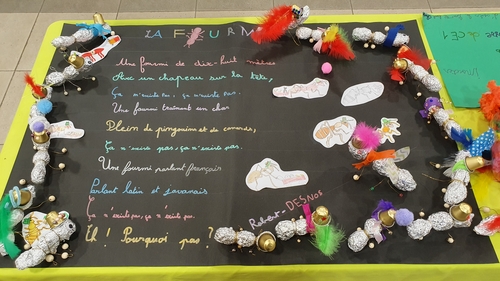 LA FOURMI
Une fourmi de dix-huit mètres
Avec un chapeau sur la tête,
Ça n'existe pas, ça n'existe pas.
Une fourmi traînant un char
Plein de pingouins et de canards,
Ça n'existe pas, ça n'existe pas.
Une fourmi parlant français
Parlant latin et javanais
Ça n'existe pas, ça n'existe pas.
Eh! Pourquoi pas?
Robert-DESNOS